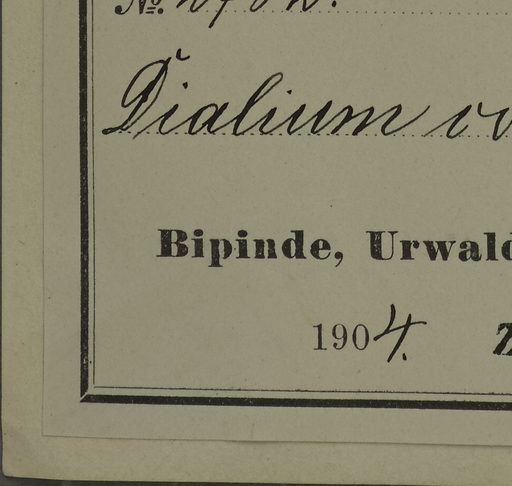 №.
Dialium
Bipinde, Urwald
1904.